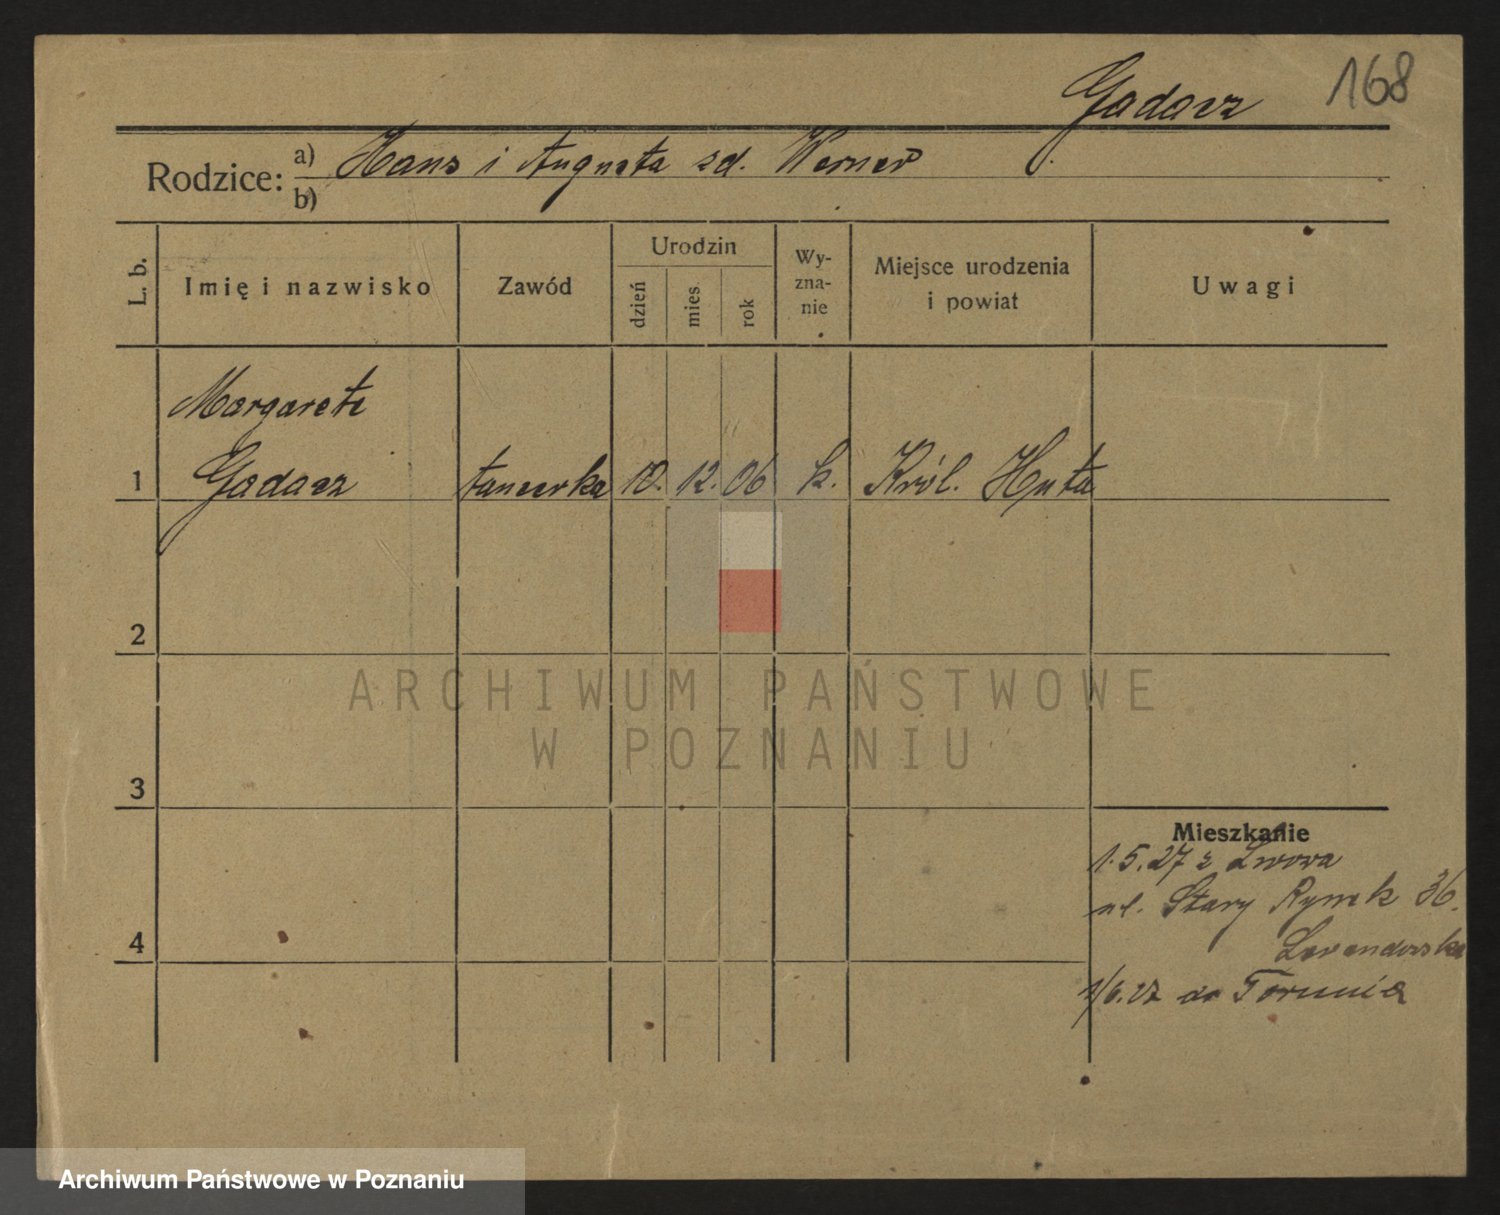 Gadacz 168
Rodzice: a) Hans i Augusta zd. Werner
b)
L. b. Imię i nazwisko Zawód Urodzin dzień mies. rok Wy-zna-nie Miejsce urodzenia i powiat Uwagi
Margarete
1 Gadacz tancerka 10. 12. 06 k. Król. Huta
2
ARCHIWUM PAŃSTWOWE
W POZNANIU
3
Mieszkanie
1.5.27 z Lwowa
ul. Stary Rynek 36.
4
1/6.27 do Torunia
Archiwum Państwowe w Poznaniu